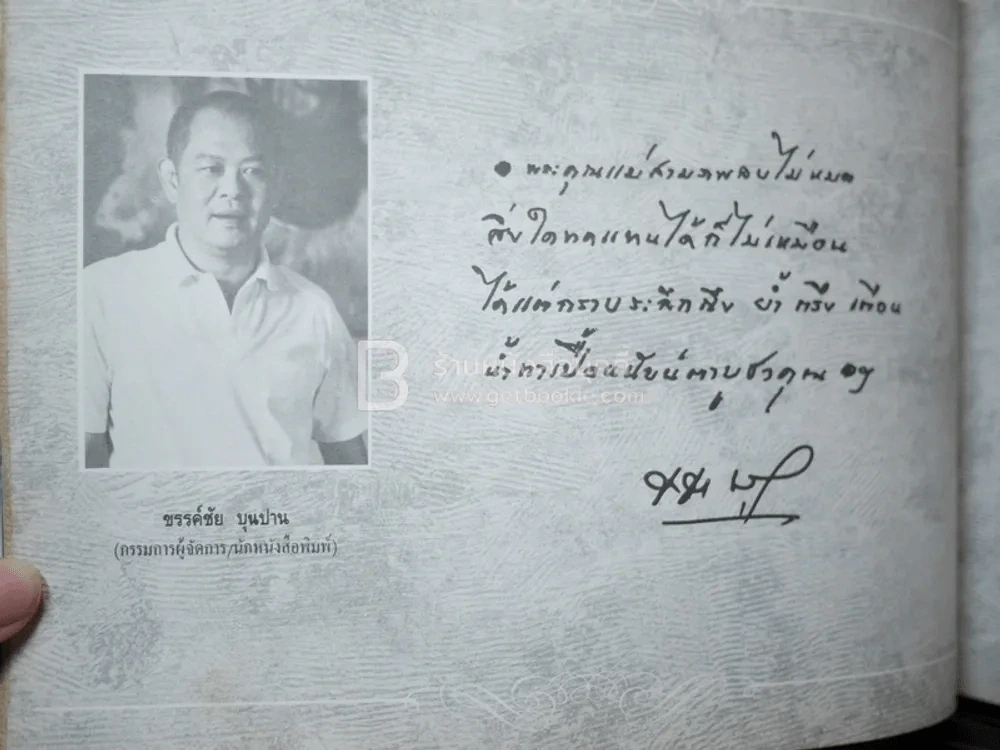 ขรรค์ชัย บุนปาน
(กรรมการผู้จัดการ/นักหนังสือพิมพ์)
• พระคุณแม่สามภพลบไม่หมด
สิ่งใดทดแทนได้ก็ไม่เหมือน
ได้แต่กราบระลึกถึง ย้ำ ตรึง เตือน
น้ำตาเปื้อนนัยน์ตาบูชาคุณ ๑ฯ
www.getbookie.com